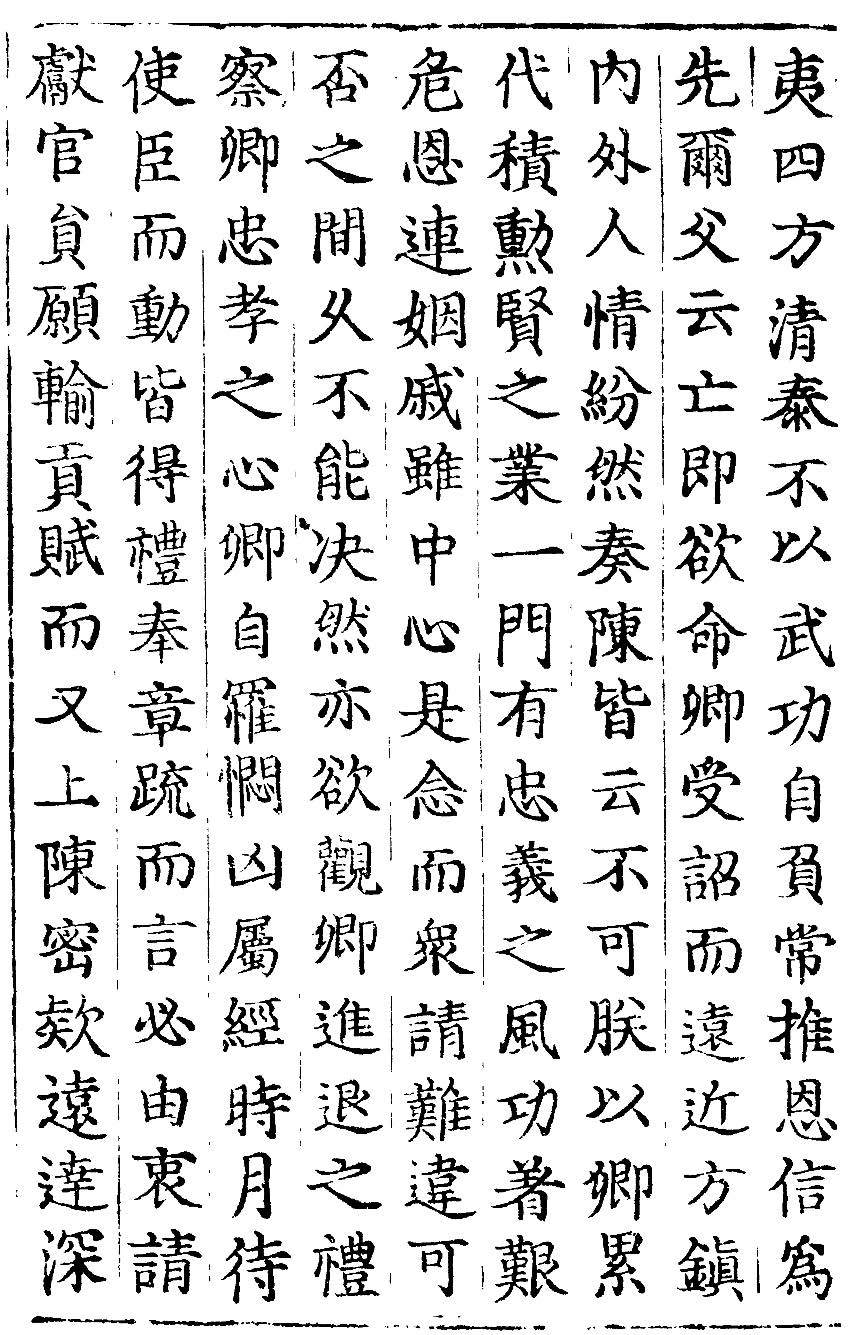 夷四方清泰不以武功自負常推恩信為
先爾父云亡即欲命卿受詔而遠近方鎮
内外人情紛然奏陳皆云不可朕以卿累
代積勲賢之業一門有忠義之風功著艱
危恩連姻戚雖中心是念而衆請難違可
否之間乆不能决然亦欲觀卿進退之禮
察卿忠孝之心卿自羅憫凶屬經時月待
使臣而動皆得禮奉章䟽而言必由衷請
獻官負願輸貢賦而又上陳密欵遠達深